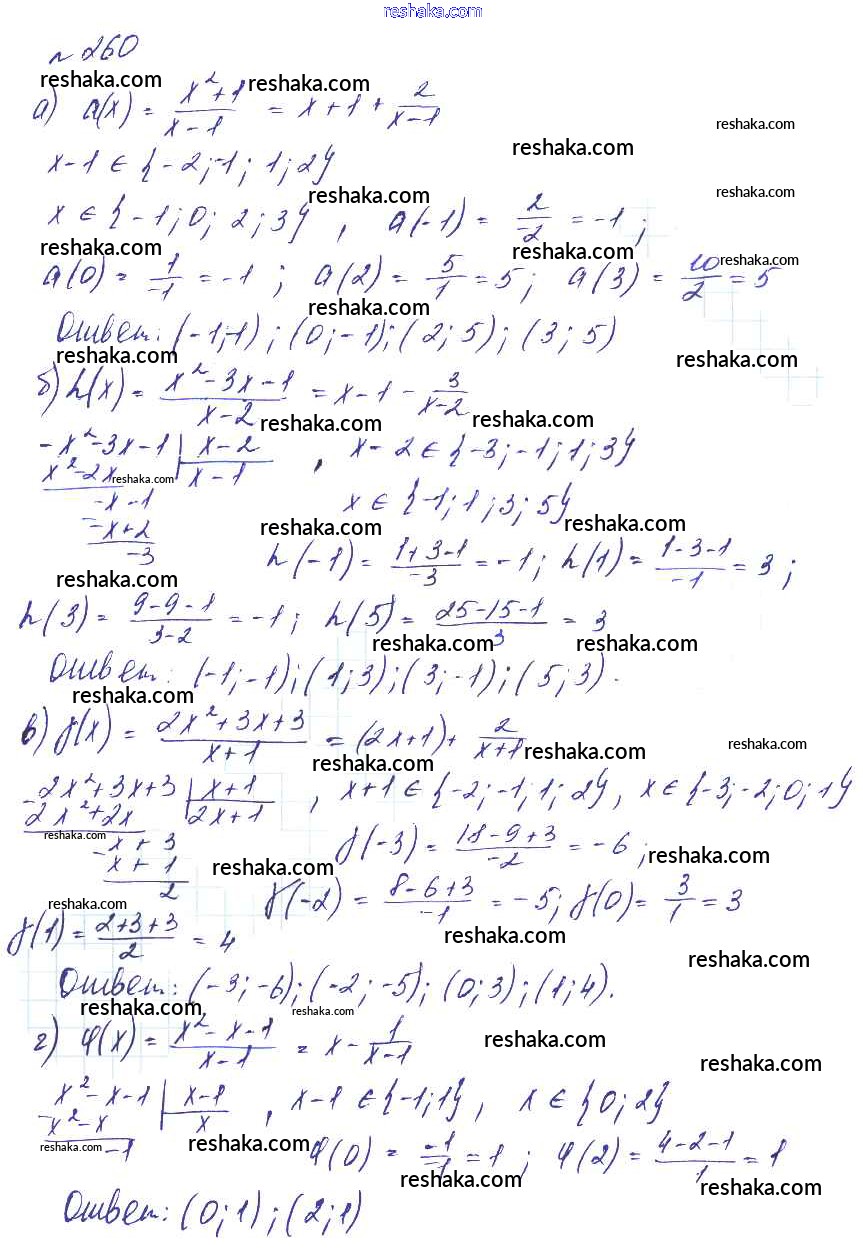 reshaka.com
№ 260
reshaka.com reshaka.com
а) a(x) = (x² + 1)/(x - 1) = x + 1 + 2/(x - 1)
reshaka.com
x - 1 ∈ {-2; -1; 1; 2}
reshaka.com
reshaka.com reshaka.com
x ∈ {-1; 0; 2; 3}, a(-1) = 2/-2 = -1;
reshaka.com reshaka.com reshaka.com
a(0) = 1/-1 = -1; a(2) = 5/1 = 5; a(3) = 10/2 = 5
reshaka.com
Ответ: (-1; -1); (0; -1); (2; 5); (3; 5)
reshaka.com reshaka.com
б) h(x) = (x² - 3x - 1)/(x - 2) = x - 1 - 3/(x - 2)
reshaka.com reshaka.com
-x² - 3x - 1 | x - 2, x - 2 ∈ {-3; -1; 1; 3}
x² - 2x reshaka.com | x - 1
-x - 1 x ∈ {-1; 1; 3; 5}
reshaka.com reshaka.com
-x + 2
-3 h(-1) = (1 + 3 - 1)/-3 = -1; h(1) = (1 - 3 - 1)/-1 = 3;
reshaka.com
h(3) = (9 - 9 - 1)/(3 - 2) = -1; h(5) = (25 - 15 - 1)/3 = 3
reshaka.com reshaka.com
Ответ: (-1; -1); (1; 3); (3; -1); (5; 3).
reshaka.com
в) f(x) = (2x² + 3x + 3)/(x + 1) = (2x + 1) + 2/(x + 1)
reshaka.com reshaka.com reshaka.com
-2x² + 3x + 3 | x + 1, x + 1 ∈ {-2; -1; 1; 2}, x ∈ {-3; -2; 0; 1}
2x² + 2x | 2x + 1
reshaka.com
-x + 3 f(-3) = (18 - 9 + 3)/-2 = -6;
reshaka.com reshaka.com
x + 1
2 f(-2) = (8 - 6 + 3)/-1 = -5; f(0) = 3/1 = 3
reshaka.com
f(1) = (2 + 3 + 3)/2 = 4
reshaka.com
reshaka.com
Ответ: (-3; -6); (-2; -5); (0; 3); (1; 4).
reshaka.com reshaka.com
г) φ(x) = (x² - x - 1)/(x - 1) = x - 1/(x - 1)
reshaka.com
reshaka.com
x² - x - 1 | x - 1, x - 1 ∈ {-1; 1}, x ∈ {0; 2}
-x² - x | x
reshaka.com reshaka.com
-1 φ(0) = -1/-1 = 1; φ(2) = (4 - 2 - 1)/1 = 1
reshaka.com reshaka.com
Ответ: (0; 1); (2; 1)